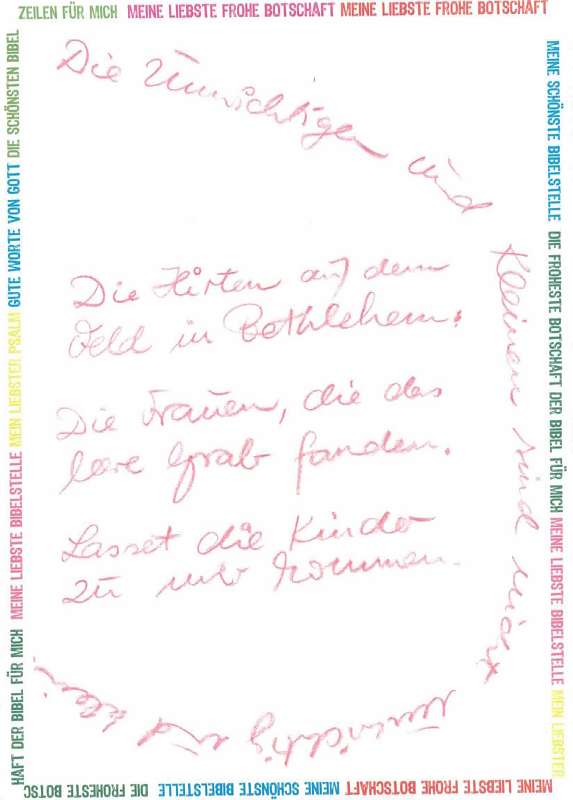 ZEILEN FÜR MICH MEINE LIEBSTE FROHE BOTSCHAFT MEINE LIEBSTE FROHE BOTSCHAFT
MEINE SCHÖNSTE BIBELSTELLE DIE FROHESTE BOTSCHAFT DER BIBEL FÜR MICH MEINE LIEBSTE BIBELSTELLE MEIN LIEBSTER
MEINE LIEBSTE FROHE BOTSCHAFT MEINE SCHÖNSTE BIBELSTELLE DIE FROHESTE BOTSC
HAFT DER BIBEL FÜR MICH MEINE LIEBSTE BIBELSTELLE MEIN LIEBSTER PSALM GUTE WORTE VON GOTT DIE SCHÖNSTEN BIBEL
Die Unwichtigen und
Kleinen sind nicht
unwichtig und klein.
Die Hirten auf dem
Feld in Bethlehem.
Die Frauen, die das
leere Grab fanden.
Lasset die Kinder
zu mir kommen.